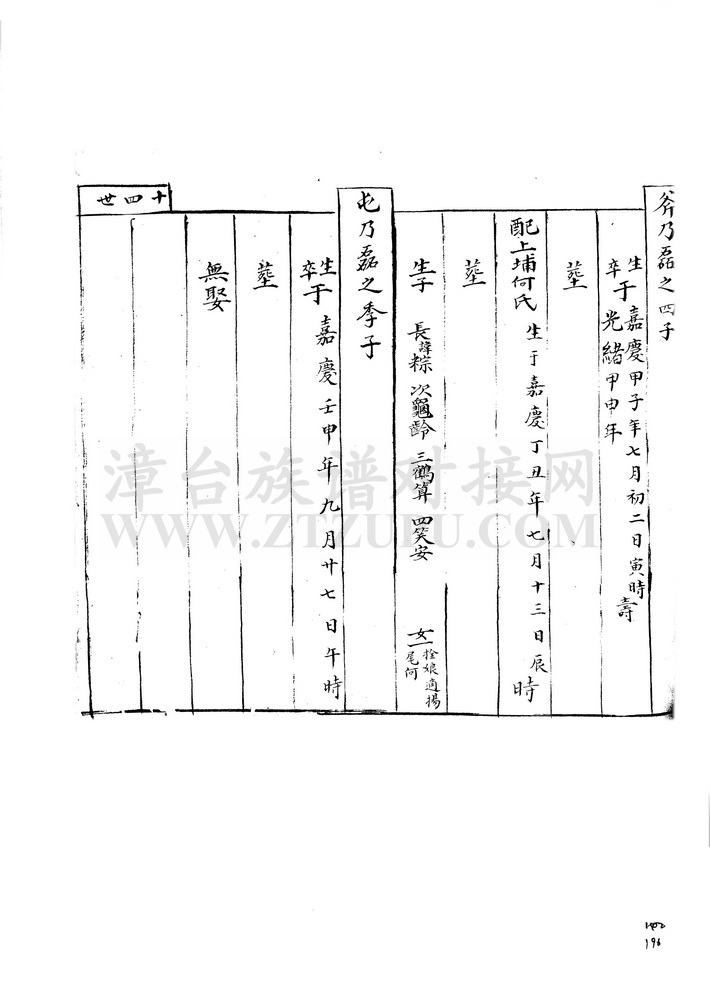 斧乃磊之四子
生于嘉慶甲子年七月初二日寅時壽
卒 光緒甲申年
塋
配上埔何氏 生于嘉慶丁丑年七月十三日辰時
塋
生子 長諱粽 次龜齡 三鶴算 四笑安 女一 拴娘適揚尾何
屯乃磊之季子
生卒于嘉慶壬申年九月廿七日午時
塋
無娶
十四世
漳台族谱对接网
WWW.ZTZUPU.COM
196